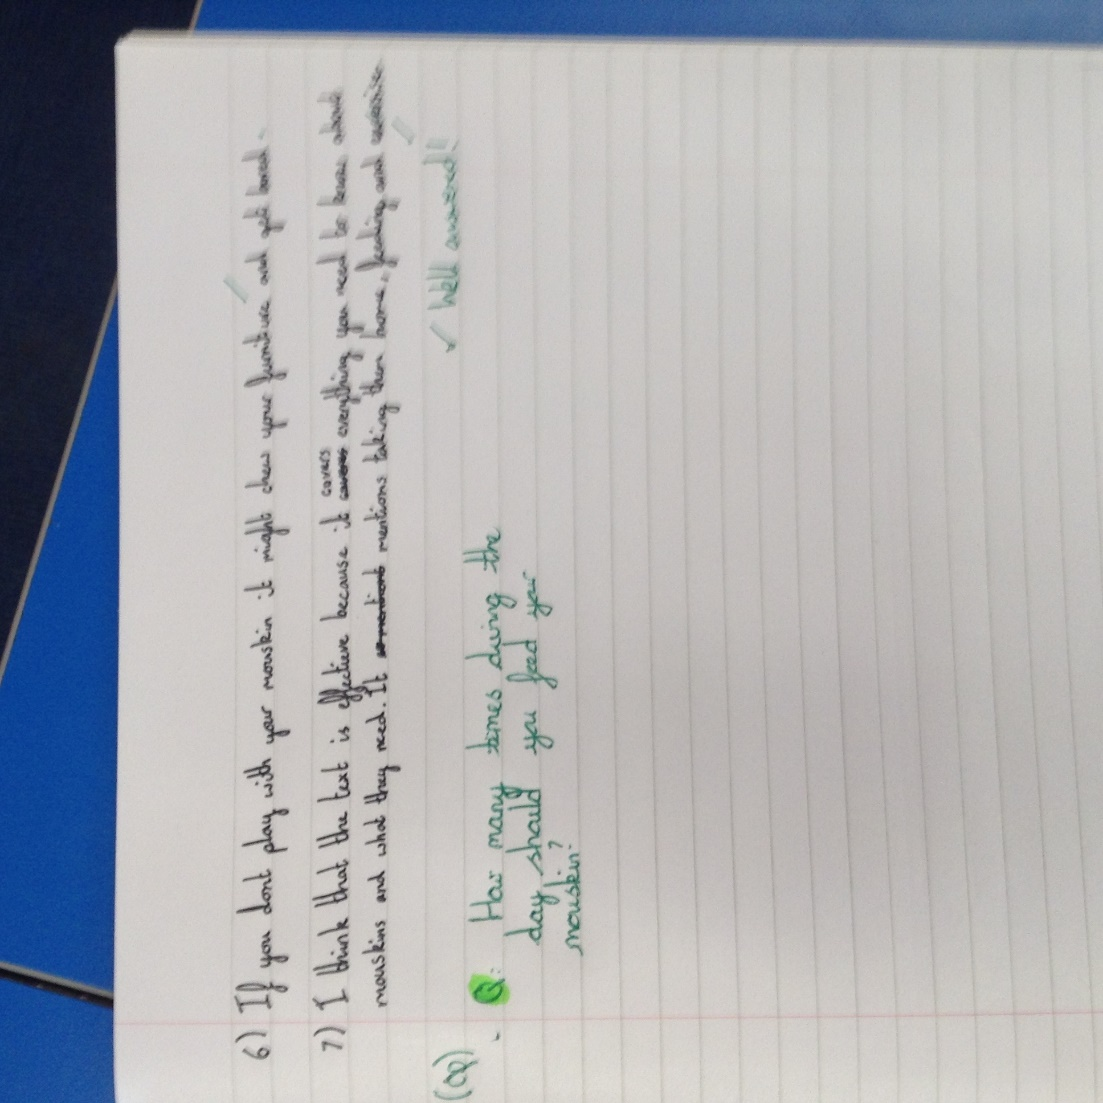 6) If you dont play with your mouskin it might chew your furniture and get bored.
7) I think that the text is effective because it covers everything you need to know about
mouskins and what they need. It mentions taking them home, feeding and exercise
✓ Well answered!!
(CQ)
Q: How many times during the
day should you feed your
mouskin?